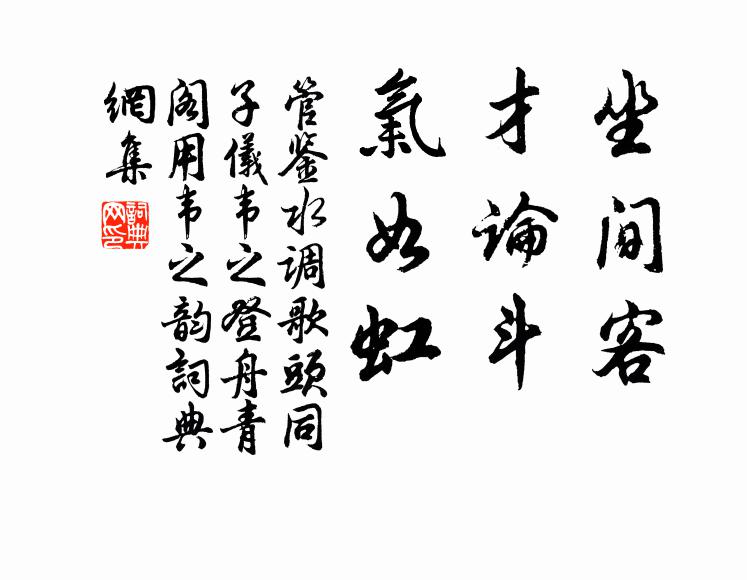 坐间客
才論斗
氣如虹
管鉴水调歌頭同
子儀韦之登舟青
阁用韦之韵詞典
網集
詞典
网印